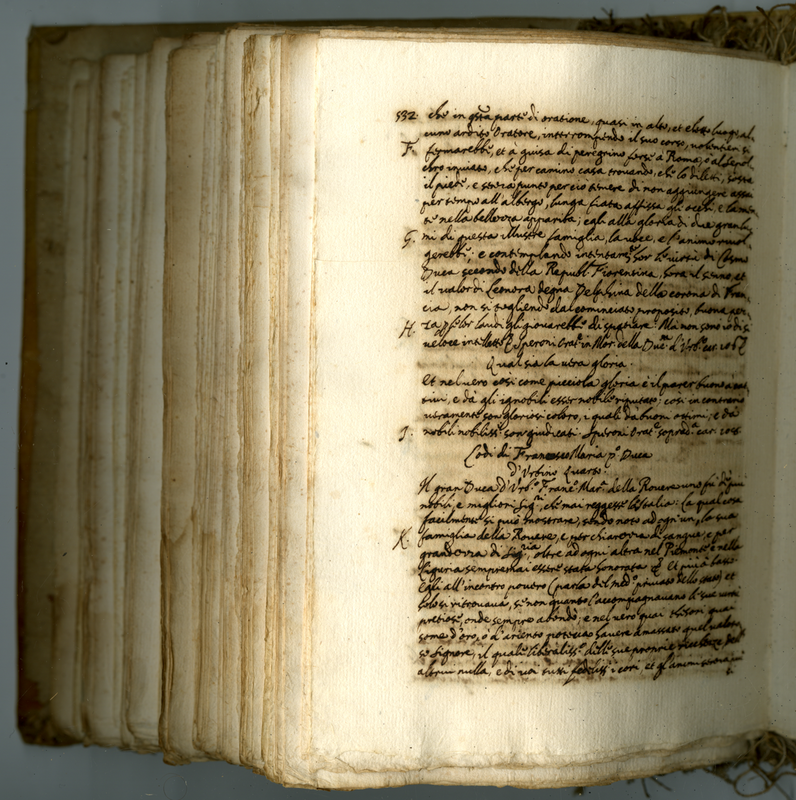 532. che in qsta parte di oratione, quasi in alto, et eletto luogo al
cuno ardito Oratore, interrompendo il suo corso, volentieri si
F. fermarebbe, et à guisa di peregrino forse à Roma, ò al sepol
cro inviato, che per camino cosa trovando, che lo diletti, sosta
il piede, e senza punto perciò temere di non aggiungere assai
per tempo all'albergo, lunga fiata affissa gli occhi, e la men
te nella bellezza apparita; egli alla gloria di due gran lu
G. mi di questa illustre famiglia, la voce, e l'animo rivol
gerebbe: e contemplando intentamte hor le virtù di Cosmo
Duca secondo della Republ. Fiorentina, hora il senno, et
il valor di Leonora degna Delphina della corona di Fran
cia, non si togliendo dal cominciato proposito, buona pez
H. za p le lor laudi gli giovarebbe di spatiare. Ma non sono io di sì
veloce intelletto Speroni Orat. in Mor. della Duc.a d'Urb. car. 1067
Qual sia la vera gloria.
Et nel vero così come picciola gloria è il parer buono à cat
tivi, e dà gli ignobili esser nobile riputato: così in contrario
veramente son gloriosi coloro, i quali dà buoni ottimi; e dà
I. nobili nobilissi son giudicati Speroni Orat. sopred.a car.
Lodi di Francesco Maria p.o Duca
d'Urbino Quarto.
Il gran Duca d'Urb.o Franc.o Mar. della Rovere uno fù de più
nobili, e migliori Sig.ri, che mai reggesse l'Italia: La qual cosa
facilmente si può mostrare, sendo noto ad ogn'un, la sua
K. famiglia della Rovere, e per chiarezza di sangue, e per
grandezza di Sig.ria, oltre ad ogni altra nel Piemonte e nella
Liguria sempre mai essere stata honorata Et più à basso
Egli all'incontro povero (parla del med.o privato dello stato) et
solo si ritrovava, se non quanto l'accompagnavano le sue virtù
pretiose, onde sempre abondò; e nel vero quai thesori quai
some d'oro, ò d'ariento poteva havere amassato quel valoro
so Signore, il quale liberaliss.o delle sue proprie ricchezze
altrui nulla, e di voi tutti fedeliss.i cori, et gl'animi